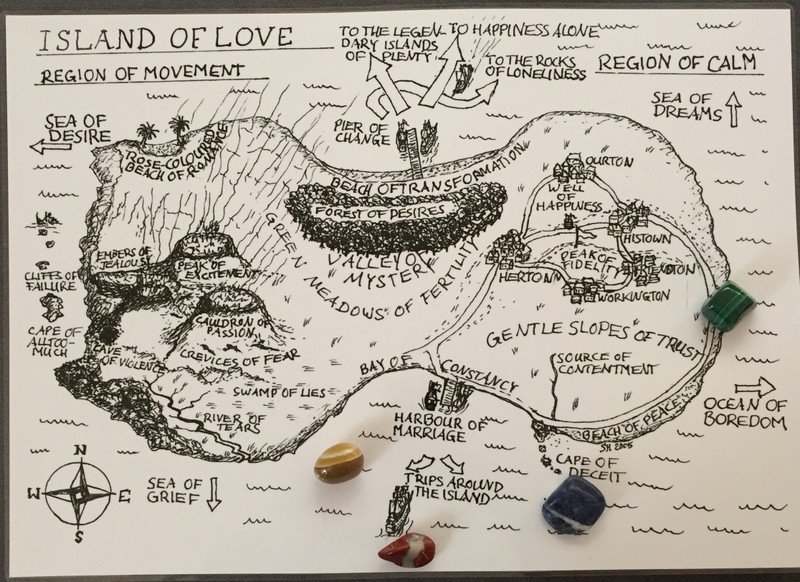 ISLAND OF LOVE
REGION OF MOVEMENT
TO THE LEGEN-
DARY ISLANDS
OF PLENTY
TO HAPPINESS ALONE
TO THE ROCKS
OF LONELINESS
REGION OF CALM
SEA OF
DESIRE
SEA OF
DREAMS
PIER OF
CHANGE
ROSE-COLOURED
BEACH OF ROMANCE
BEACH OF TRANSFORMATION
FOREST OF DESIRES
VALLEY OF
MYSTERY
GREEN MEADOWS OF FERTILITY
OURTON
WELL
OF
HAPPINESS
HISTOWN
PEAK OF
FIDELITY
HERTON
WORKINGTON
EMBERS OF
JEALOUSY
PEAK OF
EXCITEMENT
CLIFFS OF
FAILURE
CAPE OF
ALLTOO-
MUCH
CAULDRON OF
PASSION
CAVE
OF VIOLENCE
CREVICES OF FEAR
SWAMP OF LIES
RIVER OF
TEARS
GENTLE SLOPES OF TRUST
SOURCE OF
CONTENTMENT
BAY OF CONSTANCY
HARBOUR OF
MARRIAGE
BEACH OF PEACE
OCEAN OF
BOREDOM
CAPE OF
DECEIT
TRIPS AROUND
THE ISLAND
SEA OF
GRIEF
N
W E
S